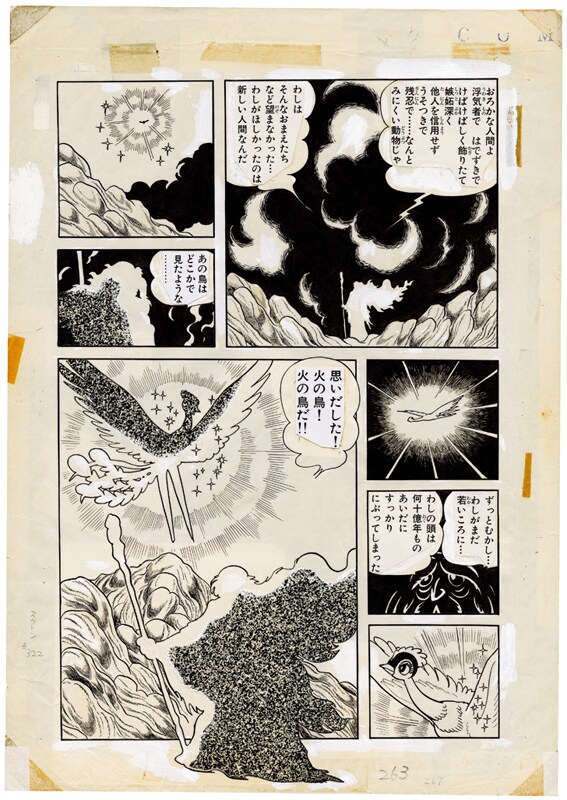 COM
おろかな人間よ
浮気者で はでずきで
けばけばしく飾りたて
嫉妬深く
他人を信用せず
うそつきで
残忍で……なんと
みにくい動物じゃ
わしは
そんなおまえたち
など望まなかった…
わしがほしかったのは
新しい人間なんだ
あの鳥は
どこかで
見たような
………
ずっとむかし…
わしがまだ
若いころに…
わしの頭は
何十億年もの
あいだに
すっかり
にぶってしまった
思いだした！
火の鳥！
火の鳥だ!!
322
263